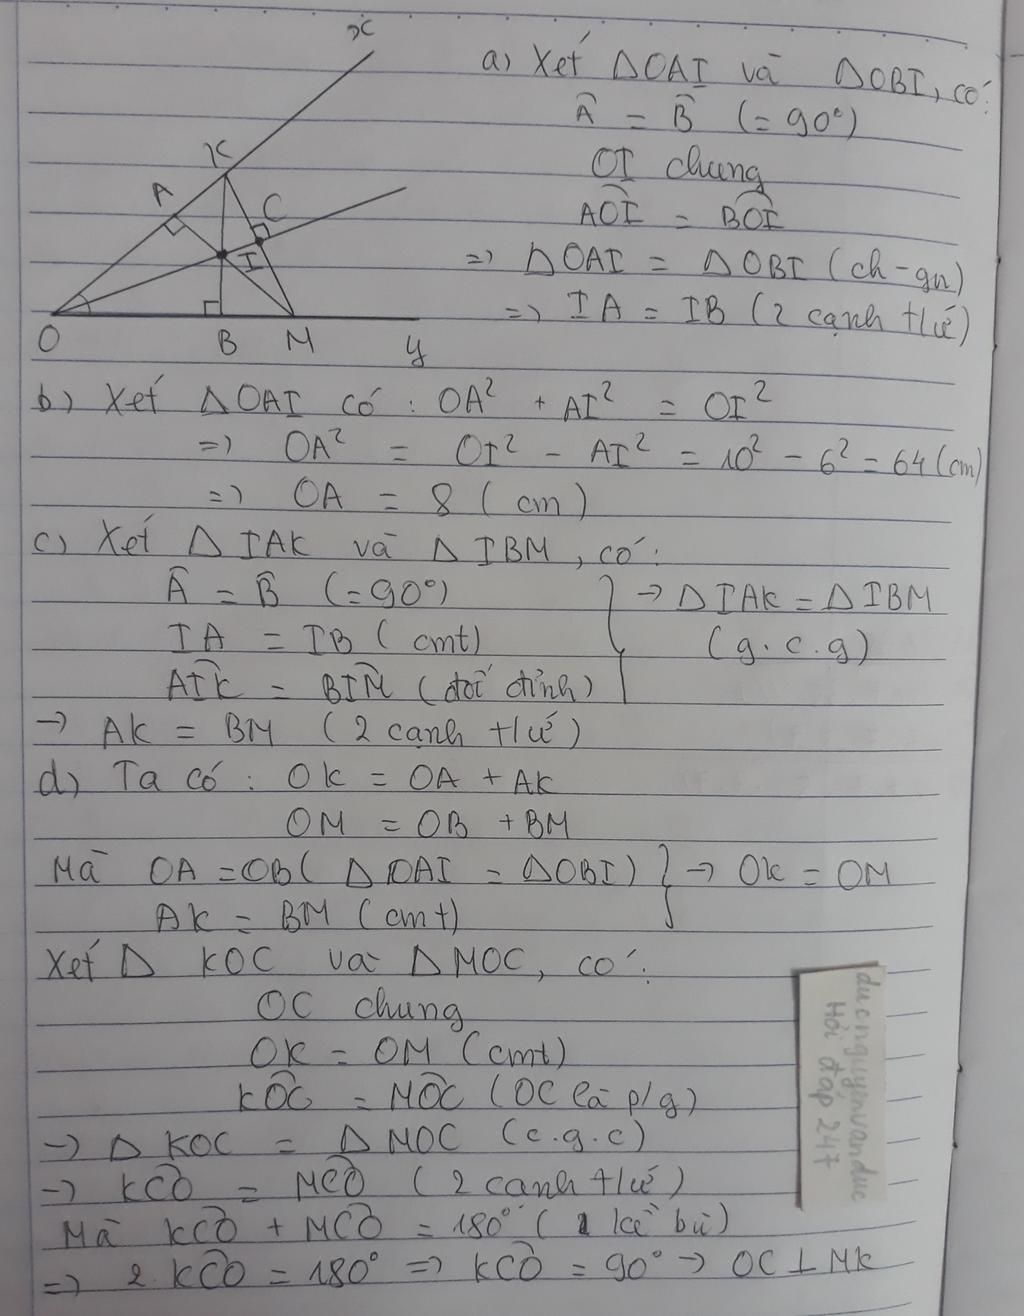 x
K
A
C
I
O
B
M
y
a) Xét ΔOAI và ΔOBI, có:
Â = B̂ (= 90°)
OI chung
AÔI = BÔI
=> ΔOAI = ΔOBI (ch-gn)
=> IA = IB (2 cạnh t/ứ)
b) Xét ΔOAI có : OA² + AI² = OI²
=> OA² = OI² - AI² = 10² - 6² = 64 (cm)
=> OA = 8 (cm)
c) Xét Δ IAK và Δ IBM, có:
Â = B̂ (= 90°)
IA = IB (cmt)
AÎK = BÎM (đối đỉnh)
→ Δ IAK = Δ IBM
(g.c.g)
→ AK = BM (2 cạnh t/ứ)
d) Ta có : OK = OA + AK
OM = OB + BM
Mà OA = OB (Δ OAI = ΔOBI) } → OK = OM
AK = BM (cmt)
Xét Δ KOC và Δ MOC, có:
OC chung
OK = OM (cmt)
KÔC = MÔC (OC là p/g)
→ Δ KOC = Δ MOC (c.g.c)
→ KĈO = MĈO (2 cạnh t/ứ)
Mà KĈO + MĈO = 180° (2 kề bù)
=> 2. KĈO = 180° => KĈO = 90° → OC ⊥ MK
ducnguyenvanduc
Hỏi đáp 247